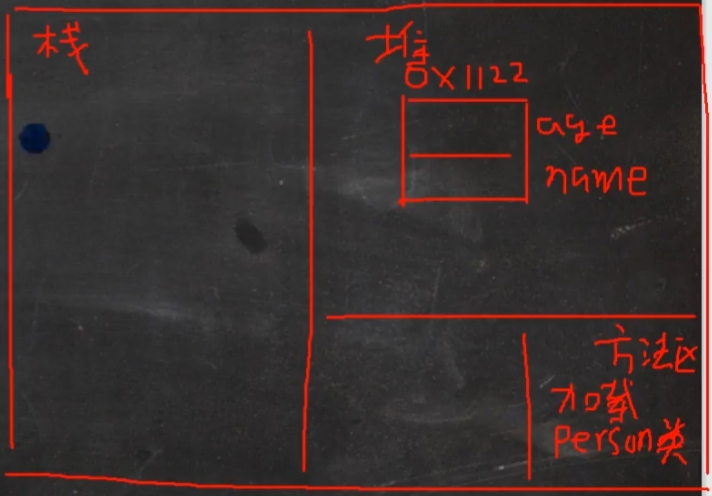 栈
堆
0x1122
age
name
方法区
加载
Person类